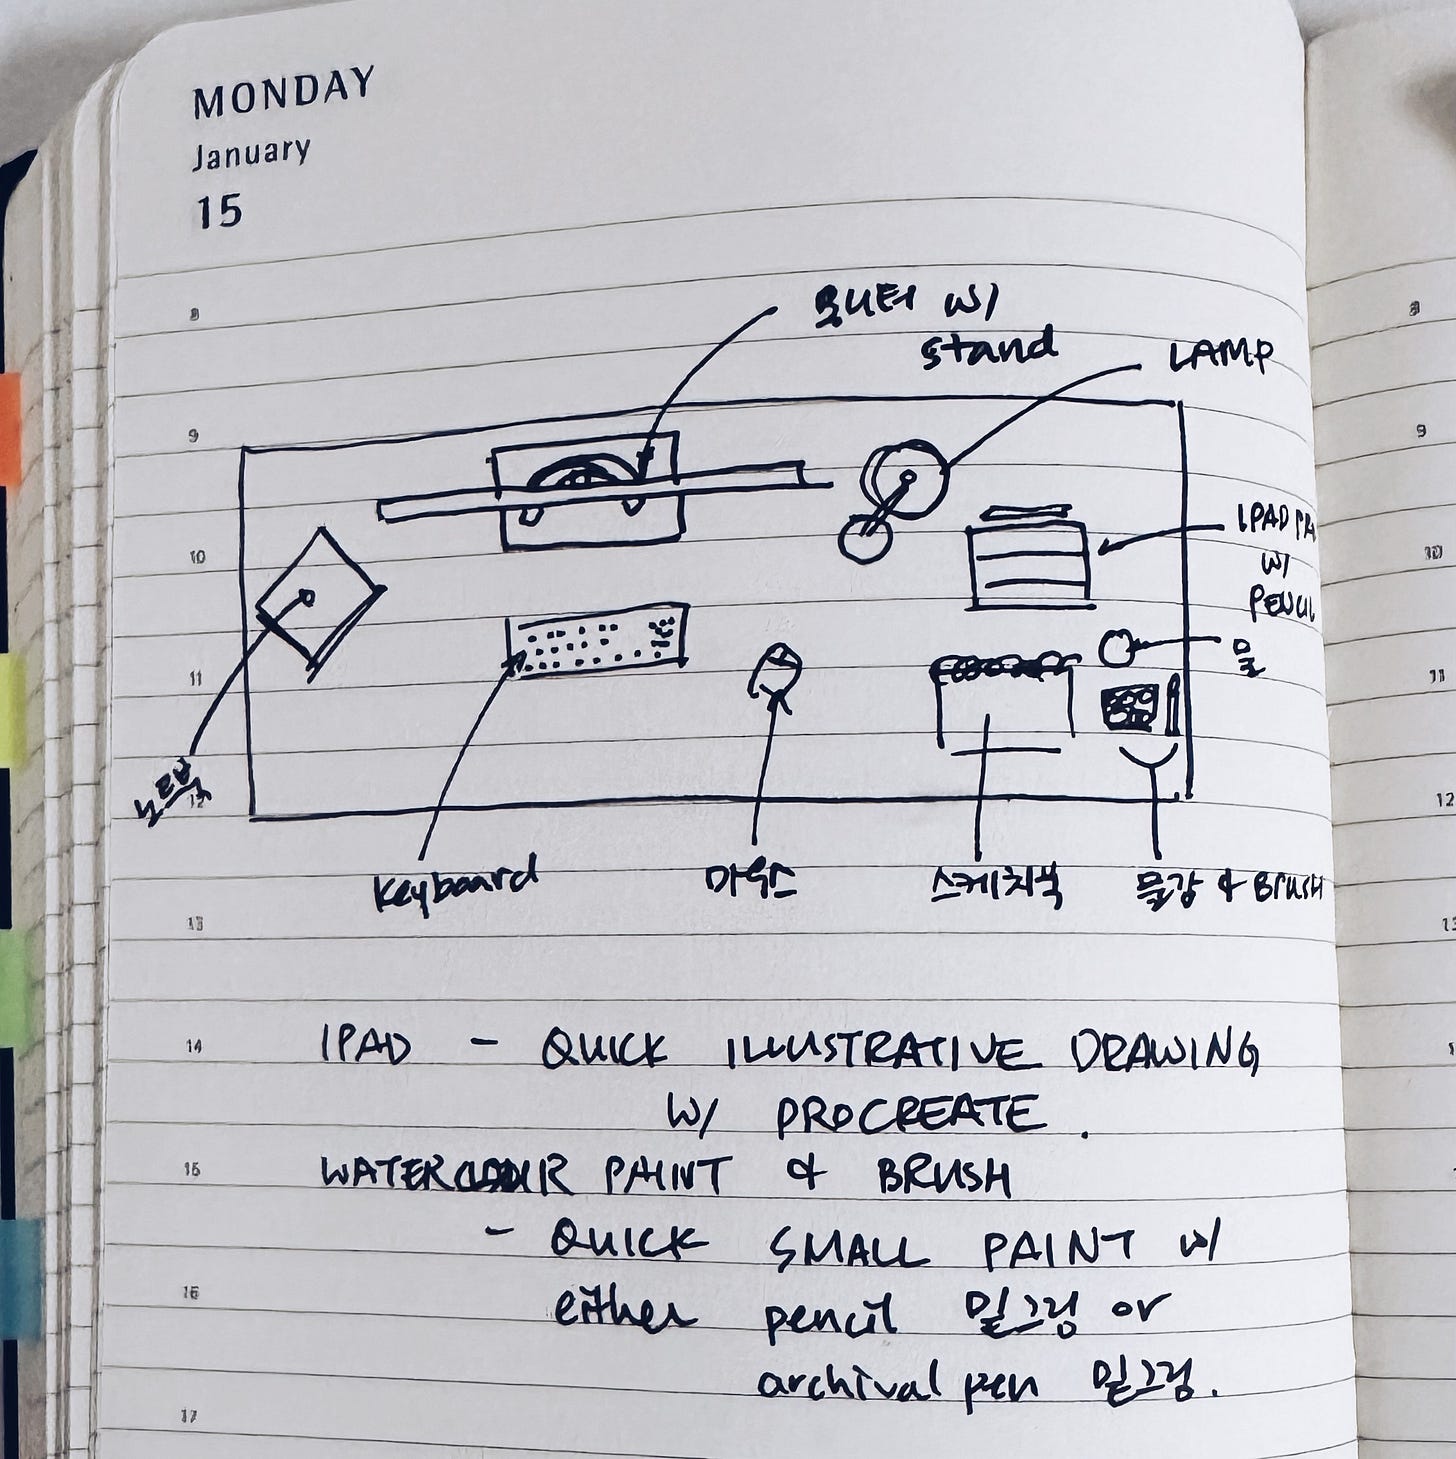 MONDAY
January
15
8
모니터 w/
stand
LAMP
9
IPAD
10
w/
PENCIL
물
11
노트북
12
keyboard
마우스
스케치북
물감 & BRUSH
13
14
IPAD - QUICK ILLUSTRATIVE DRAWING
W/ PROCREATE.
15
WATERCOLOUR PAINT & BRUSH
- QUICK SMALL PAINT w/
16
either pencil 밑그림 or
archival pen 밑그림.
17
8
9
10
11
12